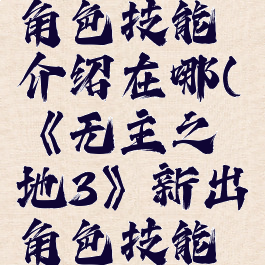 角色技能
介绍在哪(
《无主之
地3》新出
角色技能